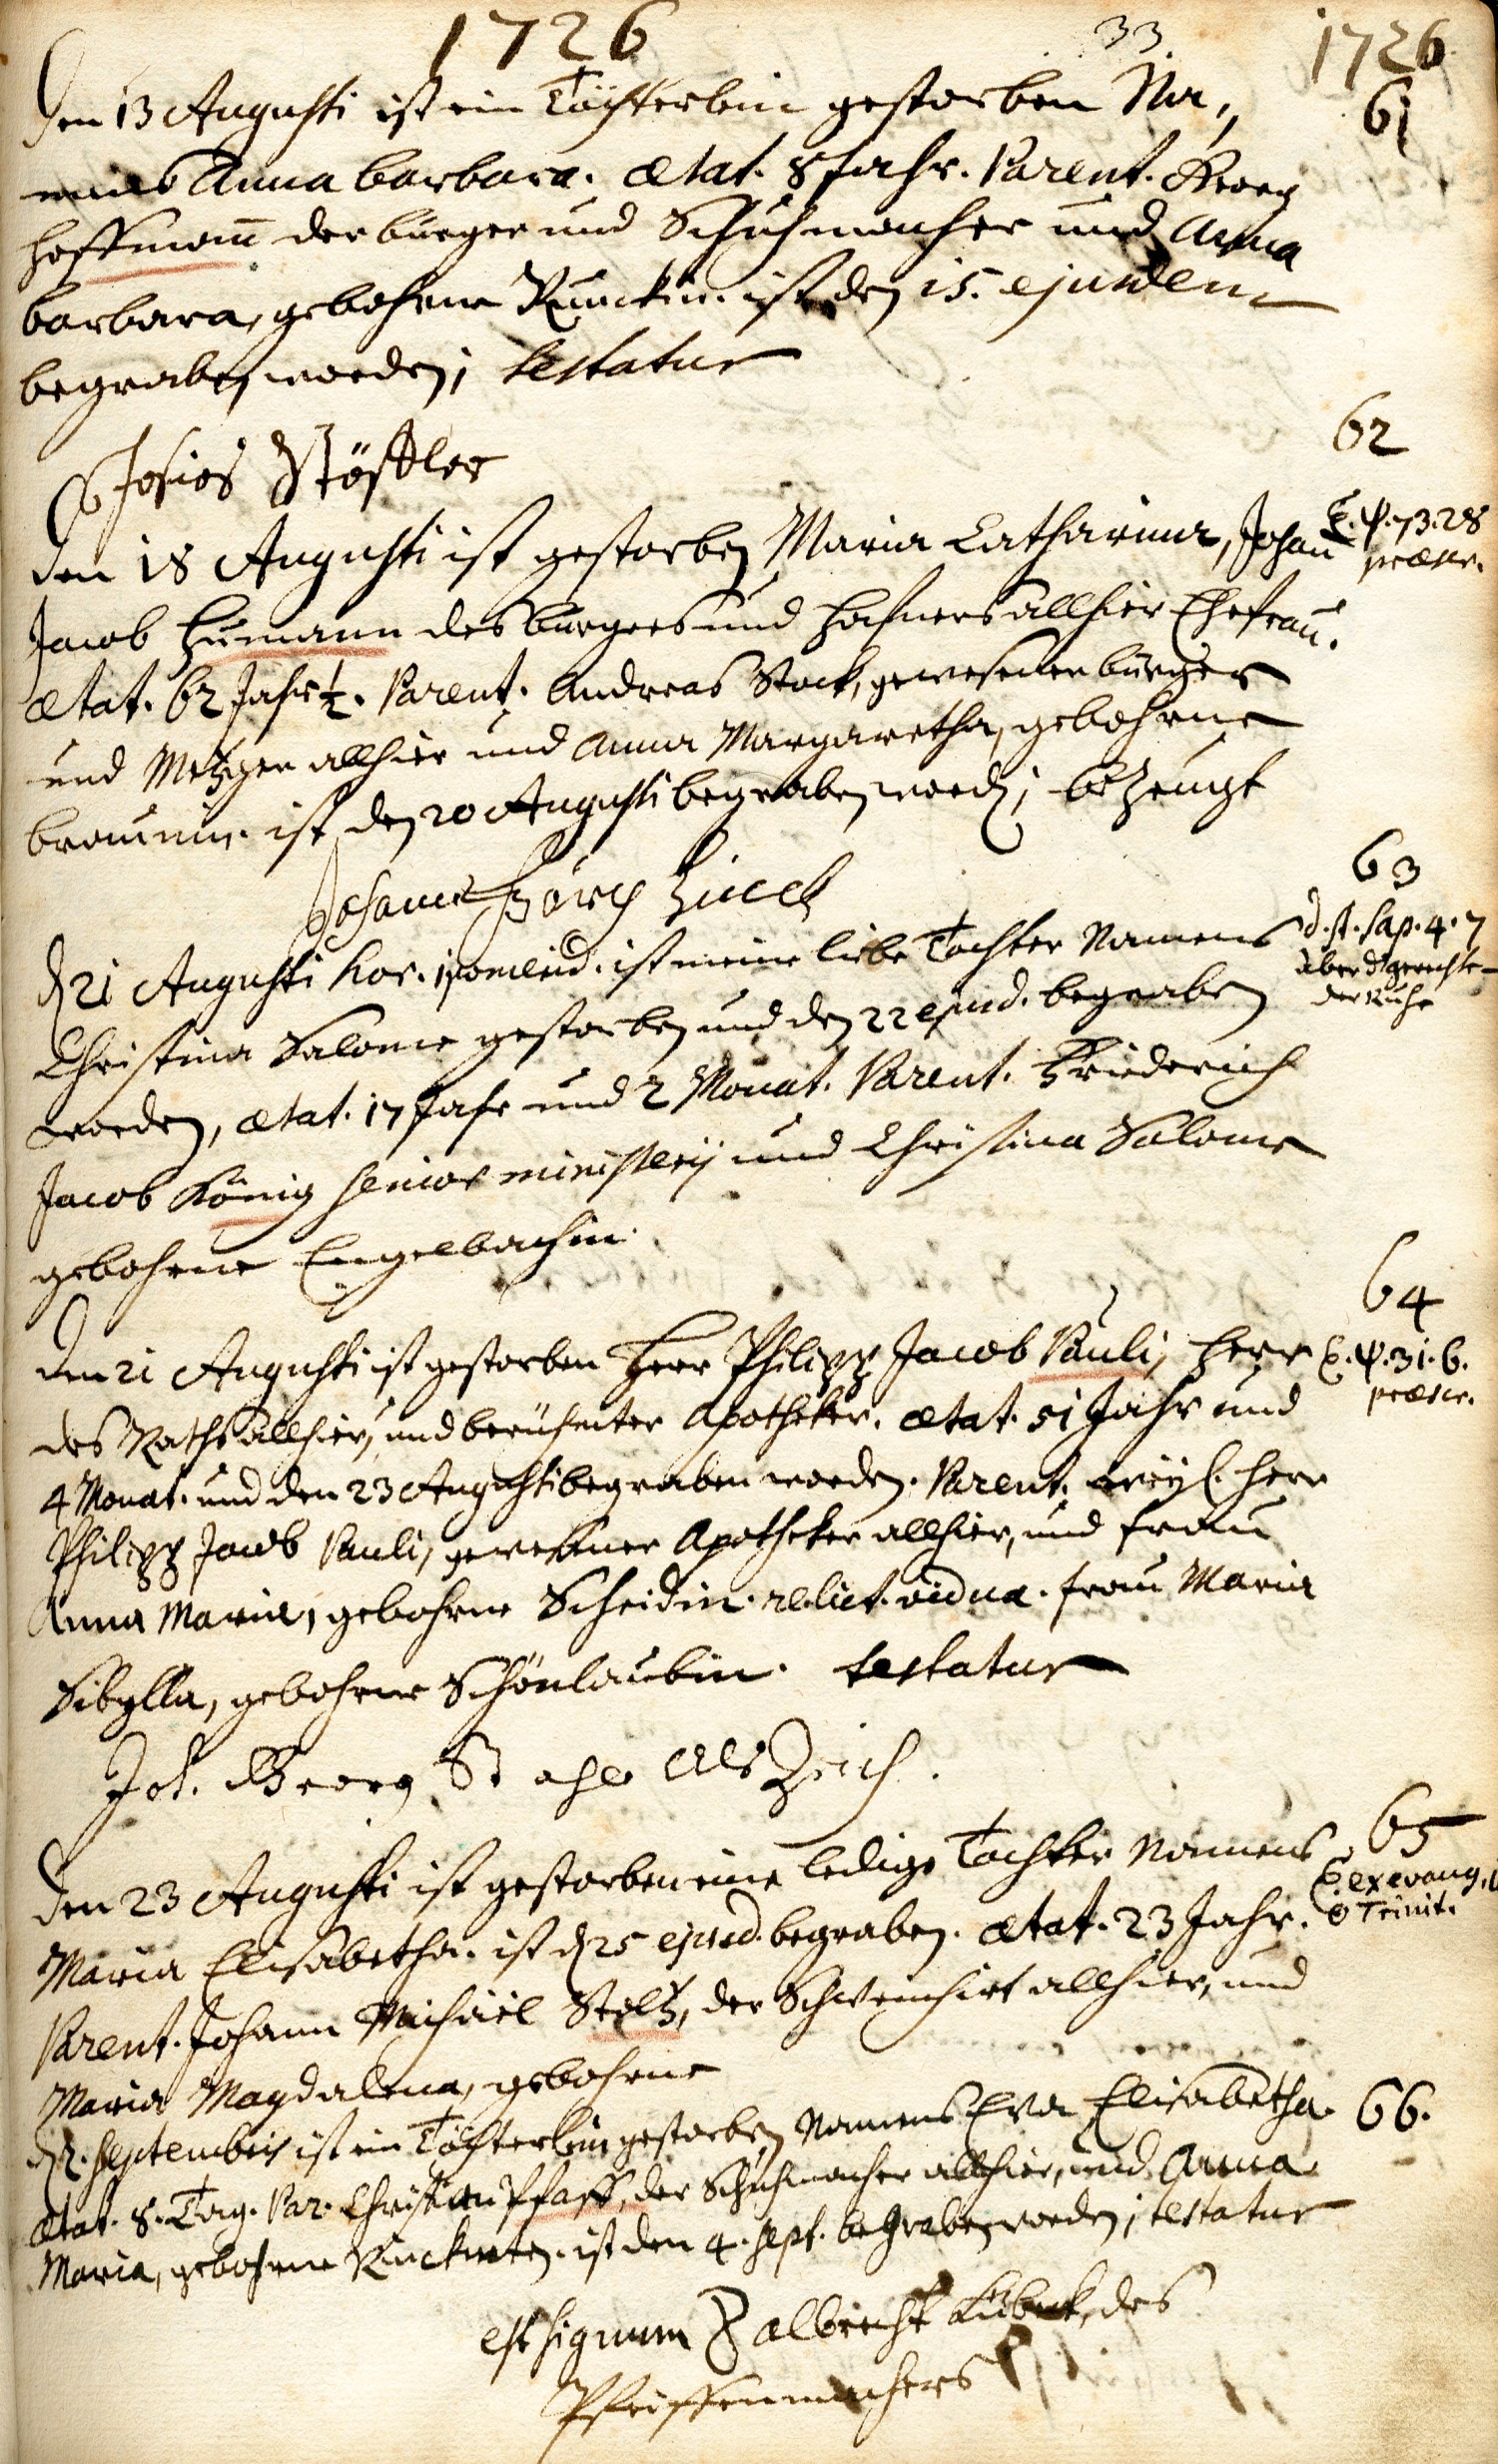 1726
33.
1726
61
Den 13 Augusti ist ein Töchterlein gestorben Na„
mens Anna barbara. ætat. 8 Jahr. Parent. Georg
Hoffmañ der burger und Schuhmacher und Anna
barbara, gebohrne ist den 15. ejusdem
begraben worden; testatur
Josias Stößler
62
E. ψ. 73. 28
præscr.
Den 18 Augusti ist gestorben Maria Catharina, Johañ
Jacob Humann des burgers und Hafners allhier Ehefrau.
ætat. 62 Jahr ½. Parent. Andreas Stock, gewesener burger
und Metzger allhier und Anna Margaretha, gebohrne
braunin. ist den 20 Augusti begraben word; bezeugt
Johannes Görg Zueck
63
d. st. Sap. 4. 7
aber d gerechte
der Ruhe
d 21 Augusti hor. pomerid. ist meine liebe Tochter Namens
Christina Salome gestorben und den 22 ejusd. begraben
worden, ætat. 17 Jahr und 2 Monat. Parent. Friederich
Jacob König senior ministerij und Christina Salome
gebohrne Engelbachin.
64
E. ψ. 31. 6.
præscr.
Den 21 Augusti ist gestorben Herr Philipp Jacob Pauli, Herr
des Raths allhier, und berühmter Apotheker. ætat. 51 Jahr und
4 Monat. und den 23 Augusti begraben worden. Parent. weyl. Herr
Philipp Jacob Pauli, gewesener Apotheker allhier, und frau
Anna Maria, gebohrne Scheidin. relict. vidua. frau Maria
Sibylla, gebohrne Schönlaubin. testatur
Joh. Georg Stahl Als Zeich.
65
E. ex evang.
Trinit.
Den 23 Augusti ist gestorben eine ledige Tochter Namens
Maria Elisabetha. ist d 25 ejusd. begraben. ætat. 23 Jahr.
Parent. Johann Michäel Stoltz, der Schweinhirt allhier, und
Maria Magdalena, gebohrne
66.
d 2. Septembris ist ein Töchterlein gestorben Namens Eva Elisabetha
ætat. 8. Tag. Par. Christian Pfaff, der Schuhmacher allhier, und Anna
Maria, gebohrne ist den 4. Sept. begraben worden; testatur
est signum albrecht Lübeck, des
Pfeiffenmachers